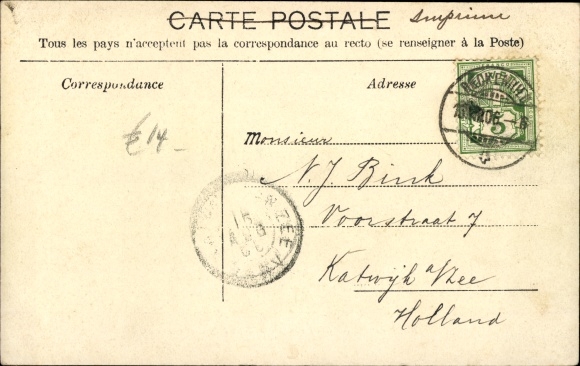 CARTE POSTALE
Imprimé
Tous les pays n'acceptent pas la correspondance au recto (se renseigner à la Poste)
Correspondance
Adresse
€14-
Monsieur
N. J. Bink
Voorstraat 7
Katwijk a/Zee
Holland
5